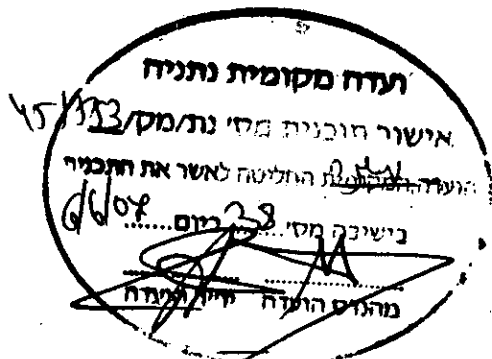 ועדה מקומית נתניה
אישור תוכנית מס׳ נת/מק/
הועדה המקומית החליטה לאשר את התכנית
בישיבה מס׳ 38 ביום
מהנדס הועדה יו״ר הועדה